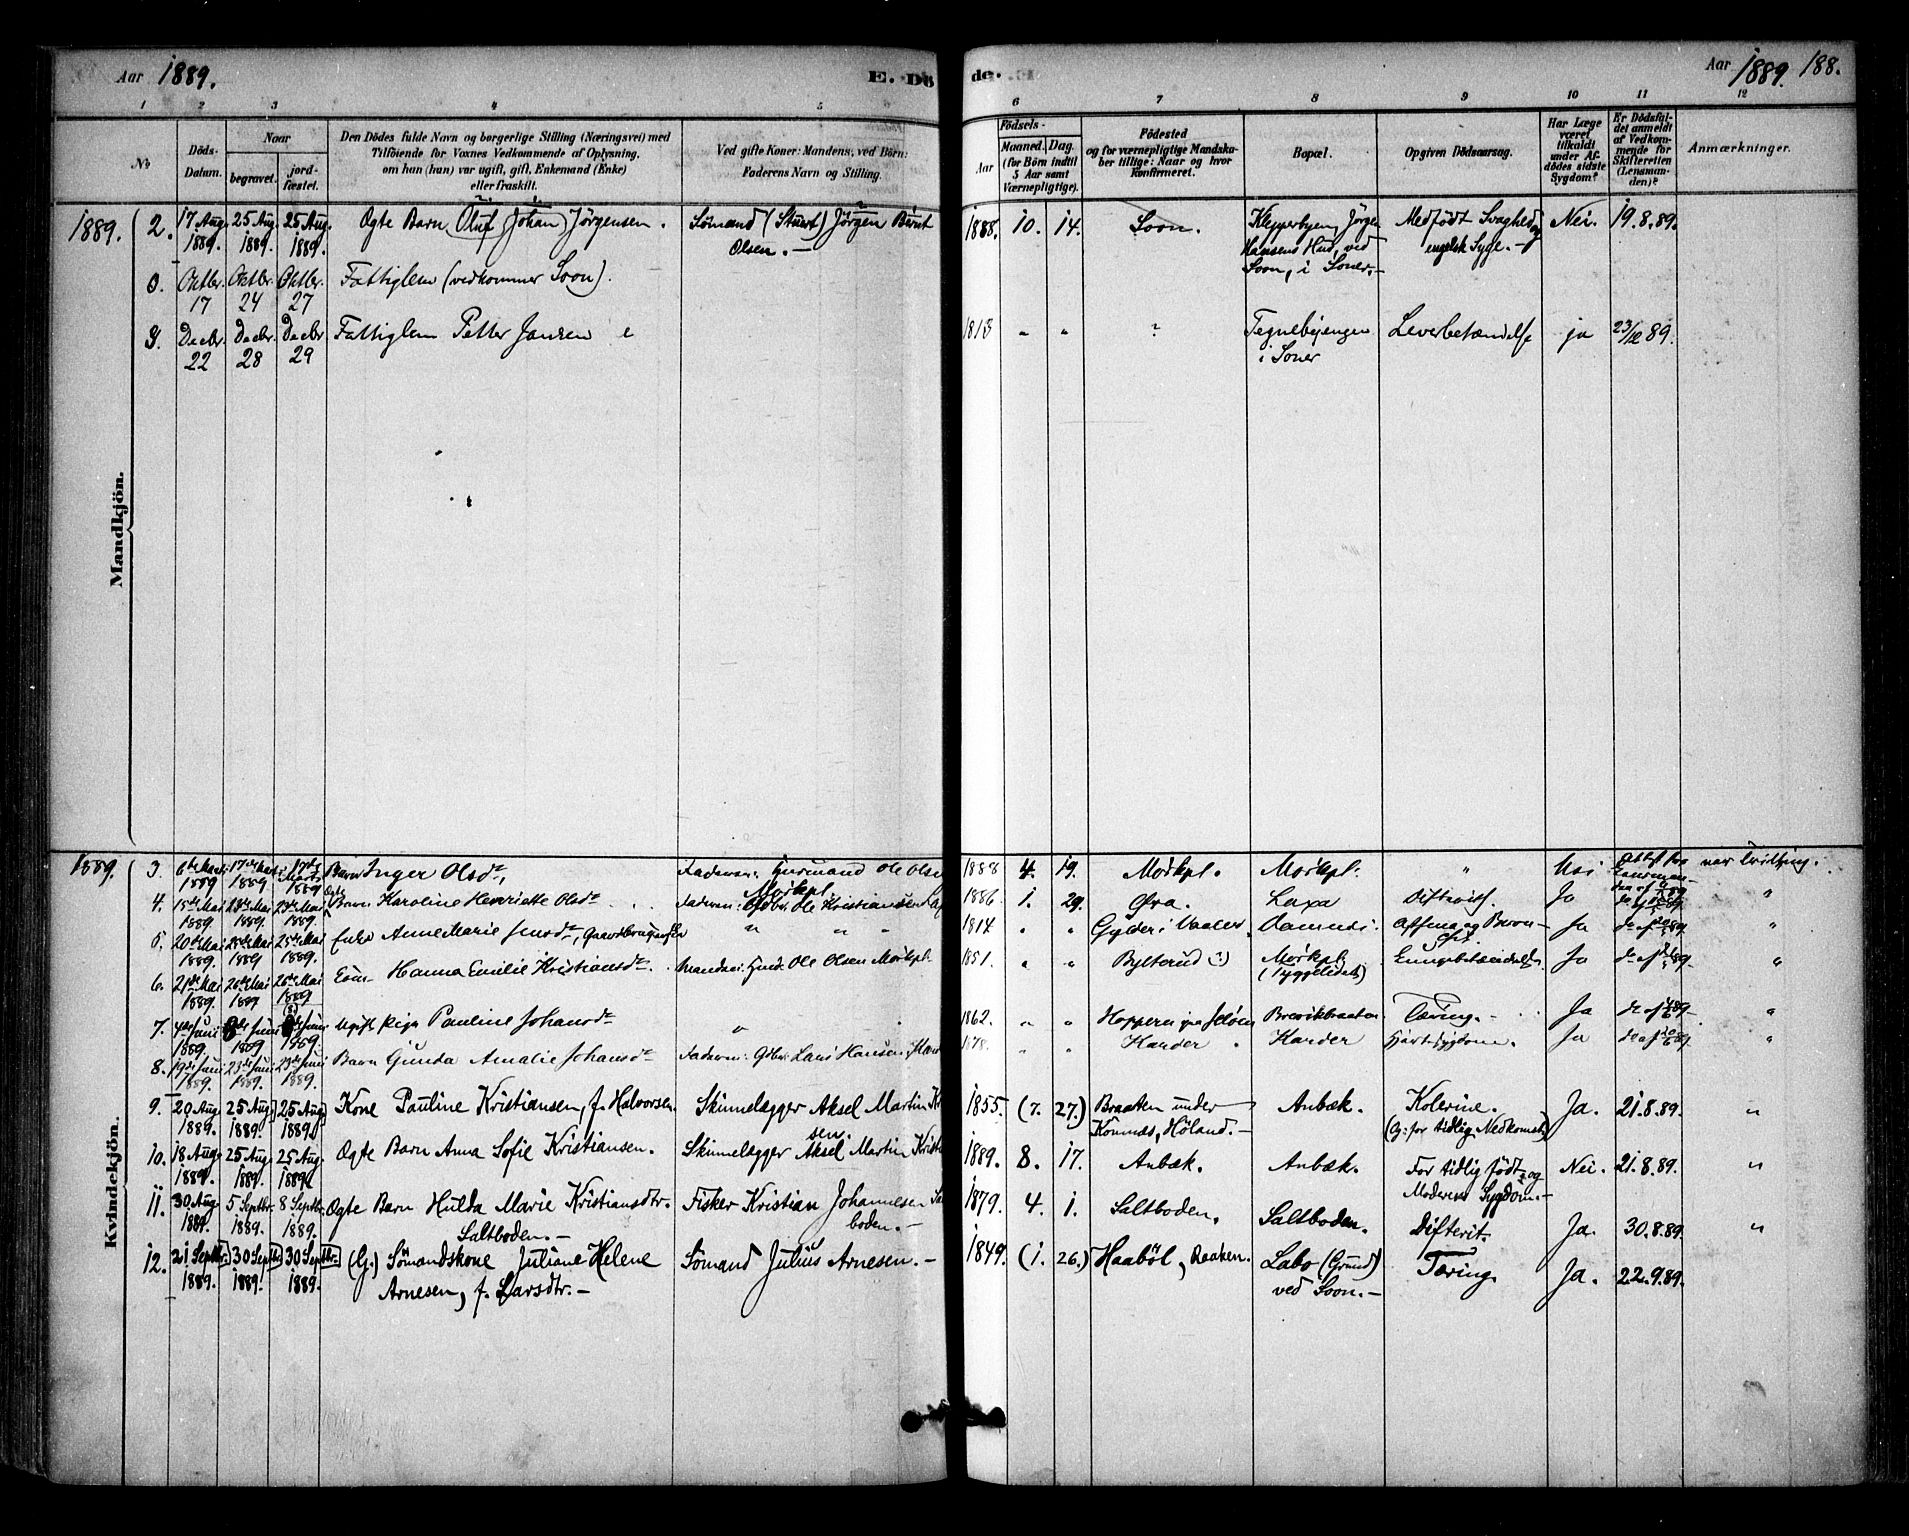 Aar 1889.
E. Dö
de.
Aar 1889. 188.
1 2 3 4 5 6 7 8 9 10 11 12
No
Döds-
Datum.
Naar
begravet.
jord-
fæstet.
Den Dödes fulde Navn og borgerlige Stilling (Næringsvei) med
Tilföiende for Voxnes Vedkommende af Oplysning,
om han (hun) var ugift, gift, Enkemand (Enke)
eller fraskilt.
Ved gifte Koner: Mandens, ved Börn:
Faderens Navn og Stilling.
Födsels-
Aar
Maaned. Dag.
(for Börn indtil
5 Aar samt
Værnepligtige).
Födested
og for værnepligtige Mandska-
ber tillige: Naar og hvor
Konfirmeret.
Bopæl.
Opgiven Dödsaarsag.
Har Læge
været
tilkaldt
under Af-
dödes sidste
Sygdom?
Er Dödsfal-
det anmeldt
af Vedkom-
mende for
Skifteretten
(Lensman-
den)?
Anmærkninger.
Mandkjön.
1889. 2. 17 Aug 25 Aug. 25 Aug. Ogte Barn Oluf (Johan) Jörgensen. Sömand (Stuert) Jörgen Bernt 1888. 10. 14. Soon. Klepperbyen, Jörgen Medfödt Svaghed og Nei. 19.8.89.
1889. 1889. 1889. Olsen. — Hansens Hus, ved engelsk Syge. —
Soon, i Soner. —
Oktbr. Oktbr. Oktbr. Fattiglem (vedkommer Soon).
17 24 27
Decbr. Decbr. Decbr. Fattiglem Petter Jansen 1813 " " ? Tegnebyengen Leverbetændelse ja 23/12 89.
22 28 29 i Soner
Kvindekjön.
1889. 3. 6te Mars 17de Mars 17de Mars Barn Inger Olsdr, Faderen: Husmand Ole Olsen 1888 4. 19. Mörkpl. Mörkpl. " Nei var Tvilling.
1889 1889 1889 Mörkpl.
4. 15de Mai 23de Mai 23de Mai Barn Karoline Henriette Olsdr Faderen: Gdbr. Ole Kristiansen 1886 1. 29. Öra. Laxa Difterit. Ja "
1889 1889. 1889.
5. 20de Mai 25de Mai 25de Mai Enke Anne Marie Jensdr, Gaardbruger " " " 1814 " " Gylder i Vaaler Ja
1889. 1889 1889.
6. 21de Mai 26de Mai 26de Mai Hanna Emilie Kristiansdr. Manden: Husmd. Ole Olsen Mörkpl. 1851. " " Bylterud Mörkpl. Lungebetændelse Ja "
1889. 1889 1889
7. 4de Juni 8de Juni Juni Ugift Pige Pauline Johansdr " 1862. " " Hoppern paa Jelöen Brevikbraaten Tæring. — Ja "
1889 1889 1889.
8. 19de Juni 23de Juni 23de Juni Barn Gunda Amalie Johansdr Faderen: Gdbr. Lars Hansen, 1878. " " Harder Harder Hjertesygdom. Ja "
1889. 1889. 1889.
9. 20 Aug. 25 Aug. 25 Aug. Kone Pauline Kristiansen, f. Halvorsen. Skinnelægger Aksel Martin 1855. (7. 27.) Braaten under Anbæk. Kolerine. Ja. 21.8.89. "
1889. 1889. 1889. sen. Höland. — (G: for tidlig Nedkomst)
10. 18 Aug. 25 Aug. 25 Aug. Ogte Barn Anna Sofie Kristiansen. Skinnelægger Aksel Martin Kristi 1889. 8. 17. Anbæk. Anbæk. For tidlig födt og Nei. 21.8.89. "
1889. 1889. 1889. Moderens Sygdom. —
11. 30 Aug. 5 Septbr. 8 Septbr. Ogte Barn Hulda Marie Kristiansdtr. Fisker Kristian Johannesen 1879. 4. 1. Saltboden. Saltboden. Difterit. Ja. 30.8.89. "
1889. 1889. 1889. Saltboden. — boden. —
12. 21 Septbr. 30 Septbr. 30 Septbr. (G.) Sömandskone Juliane Helene Sömand Julius Arnesen. — 1849. (1. 26.) Haaböl, Raaken. Labo (Grund) Tæring. Ja. 22.9.89.
1889. 1889. 1889. Arnesen, f. Larsdtr. — ved Soon. —